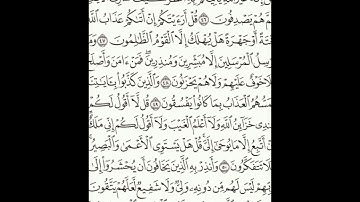 هُمْ يَصْدِفُونَ ٤٦ قُلْ أَرَءَيْتَكُمْ إِنْ أَتَىٰكُمْ عَذَابُ ٱللَّهِ
أَوْ جَهْرَةً هَلْ يُهْلَكُ إِلَّا ٱلْقَوْمُ ٱلظَّٰلِمُونَ ٤٧
ٱلْمُرْسَلِينَ إِلَّا مُبَشِّرِينَ وَمُنذِرِينَ فَمَنْ ءَامَنَ
لَا خَوْفٌ عَلَيْهِمْ وَلَا هُمْ يَحْزَنُونَ ٤٨ وَٱلَّذِينَ كَذَّبُوا۟ بِـَٔايَٰتِنَا
ٱلْعَذَابُ بِمَا كَانُوا۟ يَفْسُقُونَ ٤٩ قُل لَّآ أَقُولُ لَكُمْ
خَزَآئِنُ ٱللَّهِ وَلَآ أَعْلَمُ ٱلْغَيْبَ وَلَآ أَقُولُ لَكُمْ إِنِّى مَلَكٌ
أَتَّبِعُ إِلَّا مَا يُوحَىٰٓ إِلَىَّ قُلْ هَلْ يَسْتَوِى ٱلْأَعْمَىٰ وَٱلْبَصِيرُ
لَا تَتَفَكَّرُونَ ٥٠ وَأَنذِرْ بِهِ ٱلَّذِينَ يَخَافُونَ أَن يُحْشَرُوٓا۟ إِلَىٰ
لَيْسَ لَهُم مِّن دُونِهِۦ وَلِىٌّ وَلَا شَفِيعٌ لَّعَلَّهُمْ يَتَّقُونَ